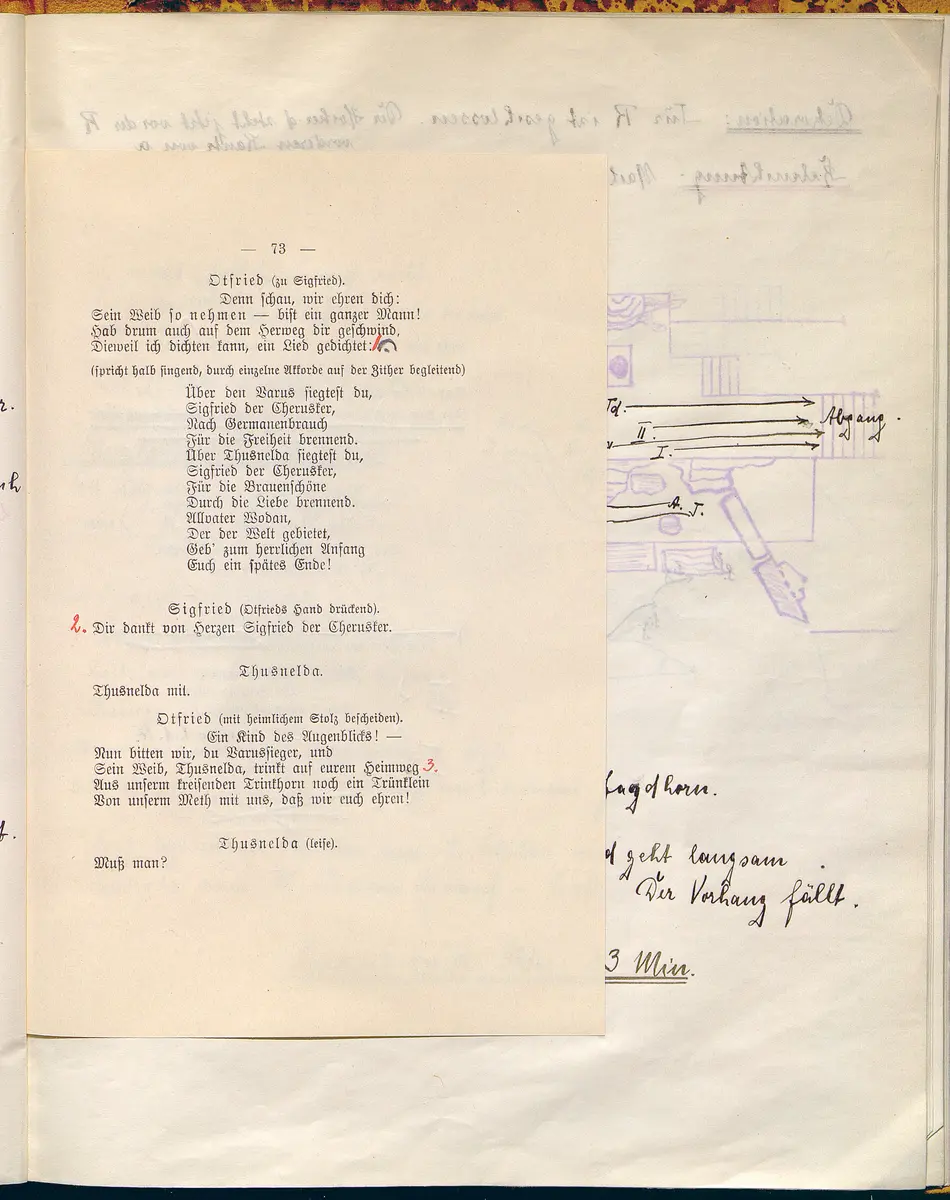 — 73 —
Otfried (zu Sigfried).
Denn schau, wir ehren dich:
Sein Weib so nehmen — bist ein ganzer Mann!
Hab drum auch auf dem Herweg dir geschwind,
Dieweil ich dichten kann, ein Lied gedichtet:
(spricht halb singend, durch einzelne Akkorde auf der Zither begleitend)
Über den Varus siegtest du,
Sigfried der Cherusker,
Nach Germanenbrauch
Für die Freiheit brennend.
Über Thusnelda siegtest du,
Sigfried der Cherusker,
Für die Brauenschöne
Durch die Liebe brennend.
Allvater Wodan,
Der der Welt gebietet,
Geb' zum herrlichen Anfang
Euch ein spätes Ende!
Sigfried (Otfrieds Hand drückend).
2. Dir dankt von Herzen Sigfried der Cherusker.
Thusnelda.
Thusnelda mit.
Otfried (mit heimlichem Stolz bescheiden).
Ein Kind des Augenblicks! —
Nun bitten wir, du Varussieger, und
Sein Weib, Thusnelda, trinkt auf eurem Heimweg 3.
Aus unserm kreisenden Trinkhorn noch ein Trünklein
Von unserm Meth mit uns, daß wir euch ehren!
Thusnelda (leise).
Muß man?
Td.
II.
I.
Abgang.
A. T.
Jagdhorn.
geht langsam
Der Vorhang fällt.
3 Min.